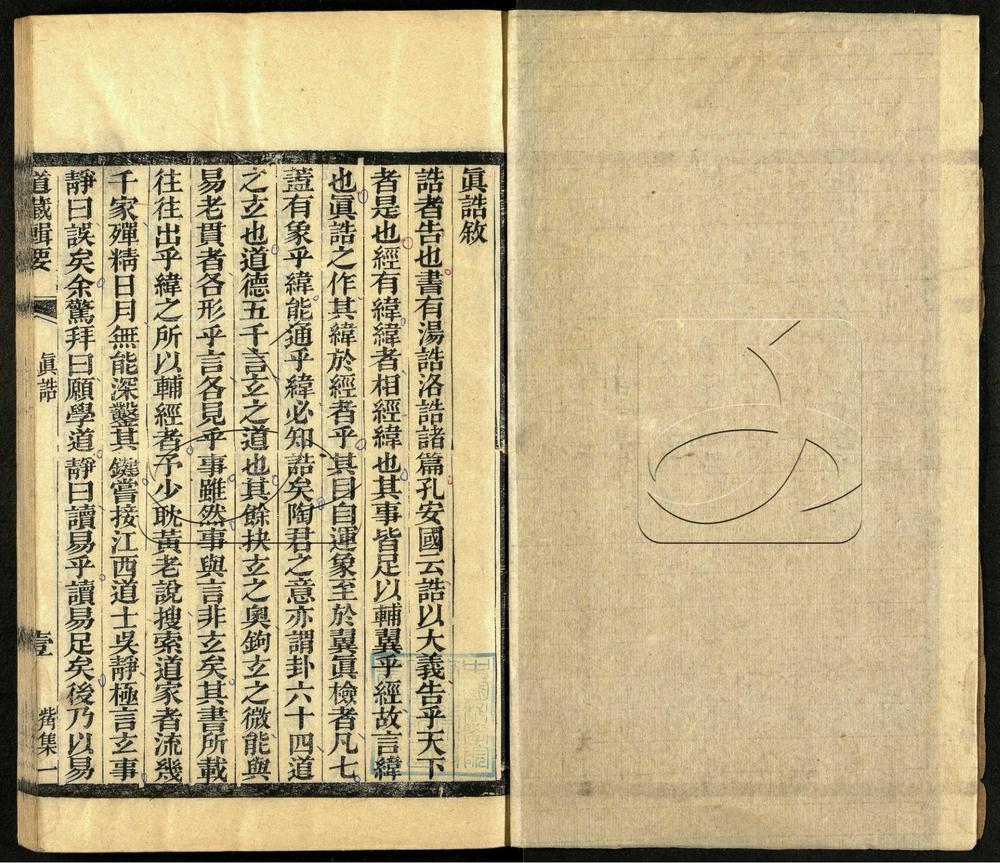 眞誥敘
誥者告也書有湯誥洛誥諸篇孔安國云誥以大義告乎天下
者是也經有緯緯者相經緯也其事皆足以輔翼乎經故言緯
也眞誥之作其緯於經者乎其目自運象至於翼眞檢者凡七
蓋有象乎緯能通乎緯必知誥矣陶君之意亦謂卦六十四道
之玄也道德五千言玄之道也其餘抉玄之奧鉤玄之微能與
易老貫者各形乎言各見乎事雖然事與言非玄矣其書所載
往往出乎緯之所以輔經者予少耽黃老說搜索道家者流幾
千家殫精日月無能深鑿其鍵嘗接江西道士吳靜極言玄事
靜曰誤矣余驚拜曰願學道靜曰讀易乎讀易足矣後乃以易
道藏輯要 眞誥 壹 觜集一